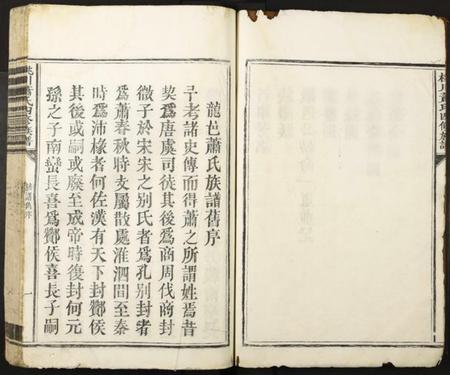 龍邑蕭氏族譜舊序
予考諸史傳而得蕭之所謂姓焉昔
契爲唐虞司徒其後爲商周伐商封
微子於宋宋之别氏者爲孔别封者
爲蕭春秋時支屬散處淮泗間至秦
時爲沛椽者何佐漢有天下封酇侯
其後或嗣或廢至成帝時復封何元
孫之子南蠻長喜爲酇侯喜長子嗣
一